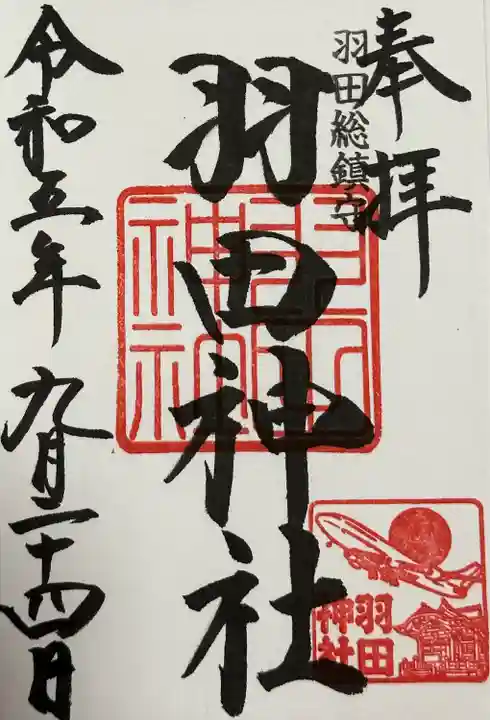 奉拝
羽田総鎮守
羽田神社
令和五年九月二十四日
羽田
神社